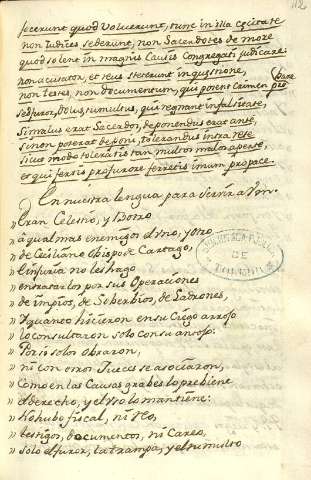 112
fecerunt quod voluerunt, tunc in illa cæcitate
non Iudices sederunt, non Sacerdotes de more
quod solent in magnis Causis Congregati judicare:
non acusator, et reus steterunt in quæstione,
non testes, non documentum, quo posent Crimen pro
bare
sed furor, dolus, tumultus, qui regnant in falsitate,
Si malus erat Sacerdos, deponendus erat ante,
si non poterat deponi, tolerandus intra rete
Sicut modo toleratis tam multos malos aperte,
et qui fertis pro furore ferretis unum pro pace.
En nuestra lengua para servir a Vm.
» Eran Celestio, y Donto
» a qual mas enemigos el Uno, y otro
» de Ceciliano Obispo de Cartago,
» Injuria no les hago
» en tratarlos por sus Operaciones
» de impios, de Soberbios, de Ladrones,
» Y quando hicieron en su Ciego arrojo
» lo consultaron solo con su antojo:
» Por si solos obraron,
» ni con otros Jueces se asociaron,
» Como en las Causas grabes lo prebiene
» el derecho, y el Uso lo mantiene:
» No hubo fiscal, ni Reo,
» testigos, documentos, ni Careo,
» solo el furor, la trampa, y el tumulto
BIBLIOTECA PUBLICA
DE